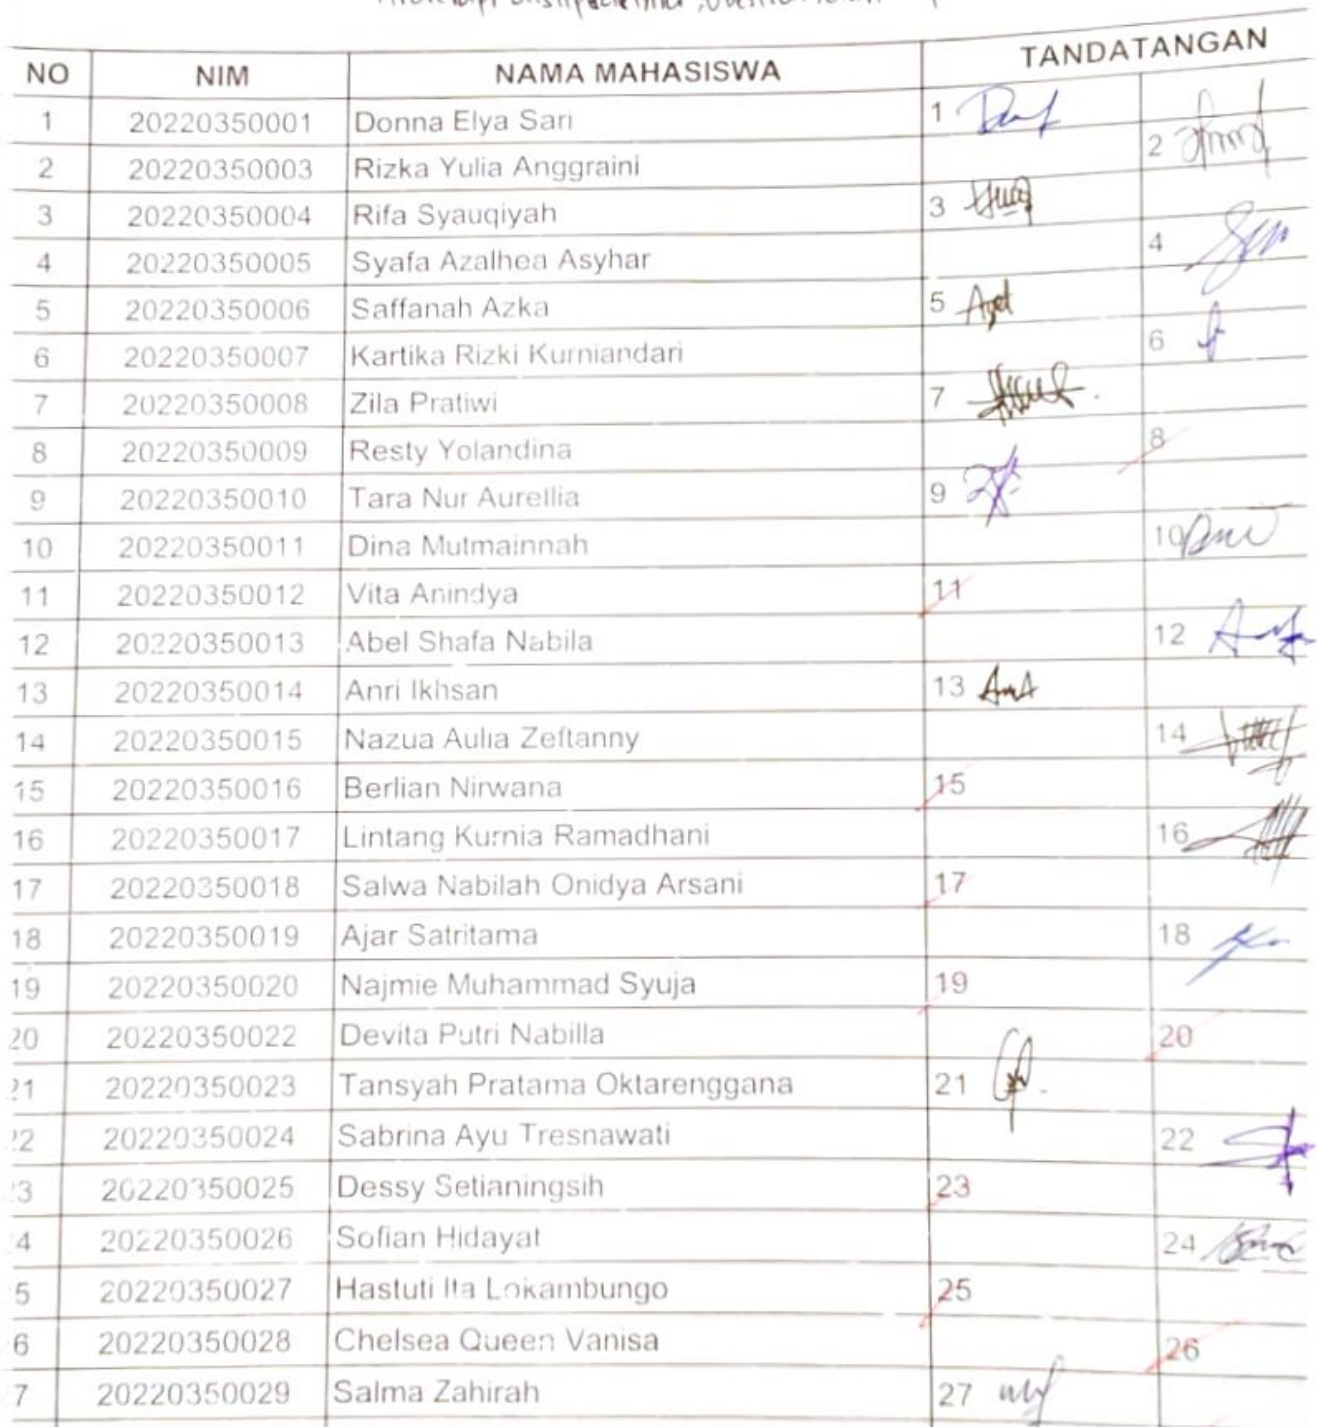 NO NIM NAMA MAHASISWA TANDATANGAN
1 20220350001 Donna Elya Sari 1
2 20220350003 Rizka Yulia Anggraini 2
3 20220350004 Rifa Syauqiyah 3
4 20220350005 Syafa Azalhea Asyhar 4
5 20220350006 Saffanah Azka 5
6 20220350007 Kartika Rizki Kurniandari 6
7 20220350008 Zila Pratiwi 7
8 20220350009 Resty Yolandina 8
9 20220350010 Tara Nur Aurellia 9
10 20220350011 Dina Mutmainnah 10
11 20220350012 Vita Anindya 11
12 20220350013 Abel Shafa Nabila 12
13 20220350014 Anri Ikhsan 13
14 20220350015 Nazua Aulia Zeftanny 14
15 20220350016 Berlian Nirwana 15
16 20220350017 Lintang Kurnia Ramadhani 16
17 20220350018 Salwa Nabilah Onidya Arsani 17
18 20220350019 Ajar Satritama 18
19 20220350020 Najmie Muhammad Syuja 19
20 20220350022 Devita Putri Nabilla 20
21 20220350023 Tansyah Pratama Oktarenggana 21
22 20220350024 Sabrina Ayu Tresnawati 22
3 20220350025 Dessy Setianingsih 23
4 20220350026 Sofian Hidayat 24
5 20220350027 Hastuti Ita Lokambungo 25
6 20220350028 Chelsea Queen Vanisa 26
7 20220350029 Salma Zahirah 27